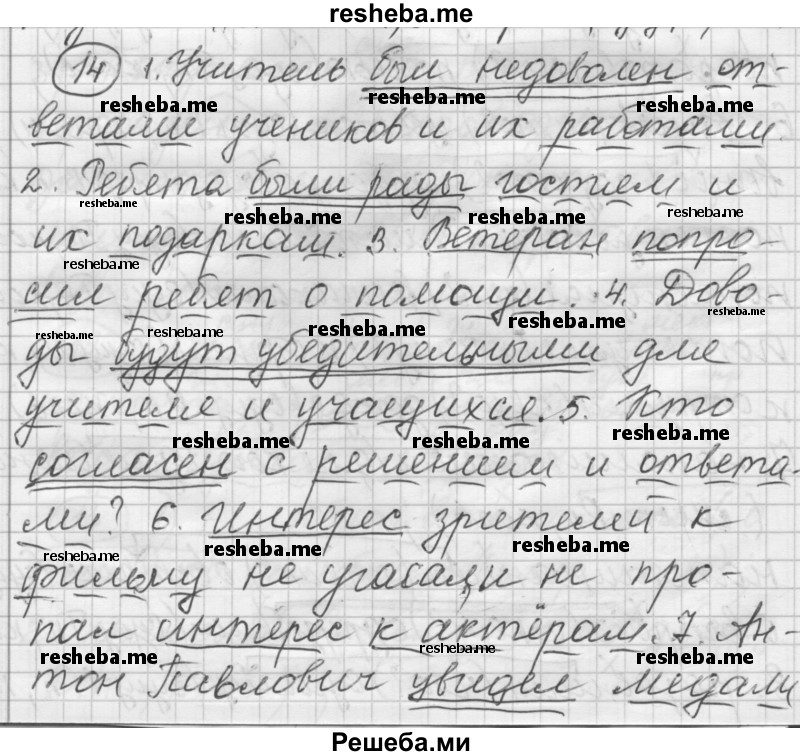 resheba.me
14 1. Учитель был недоволен от-
resheba.me resheba.me resheba.me
ветами учеников и их работами.
2. Ребята были рады гостям и
resheba.me resheba.me resheba.me resheba.me
их подаркам. 3. Ветеран попро-
resheba.me
сил ребят о помощи. 4. Дово-
resheba.me resheba.me resheba.me resheba.me resheba.me
ды будут убедительными для
учителя и учащихся. 5. Кто
resheba.me resheba.me resheba.me
согласен с решением и ответа-
ми? 6. Интерес зрителей к
resheba.me resheba.me resheba.me
фильму не угасал, и не про-
пал интерес к актёрам. 7. Ан-
resheba.me resheba.me resheba.me
тон Павлович увидел медали
Решеба.ми